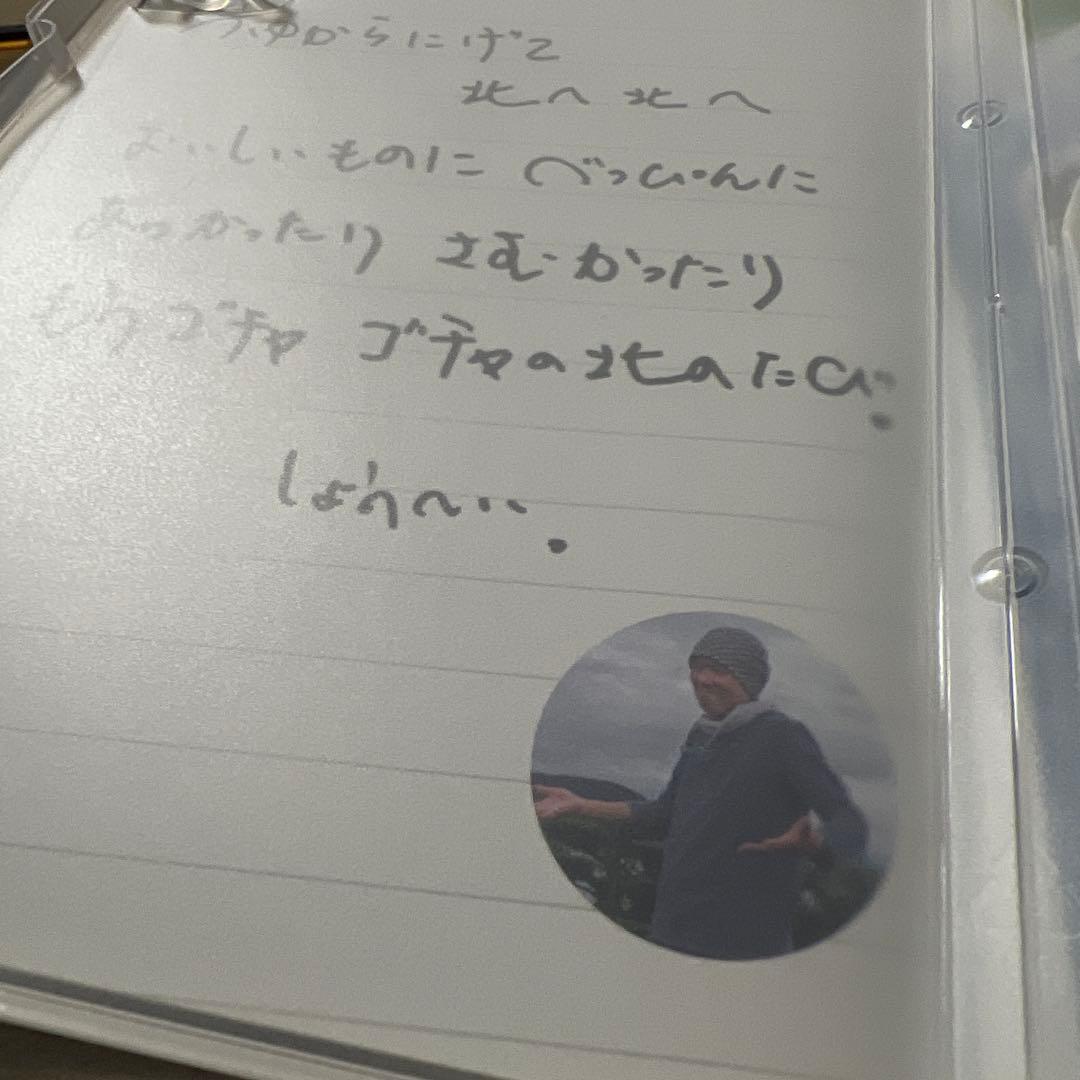 つゆからにげて
北へ 北へ
おいしいものに べっぴんに
あつかったり さむかったり
もうゴチャ ゴチャの北のたび.
しょうへい.